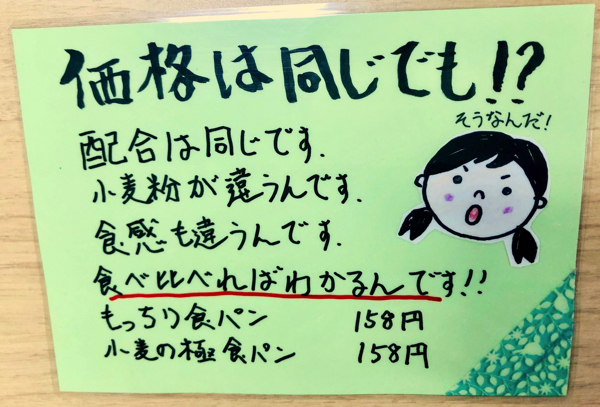 価格は同じでも!?
そうなんだ!
配合は同じです.
小麦粉が違うんです.
食感も違うんです.
食べ比べればわかるんです!!
もっちり食パン 158円
小麦の極食パン 158円